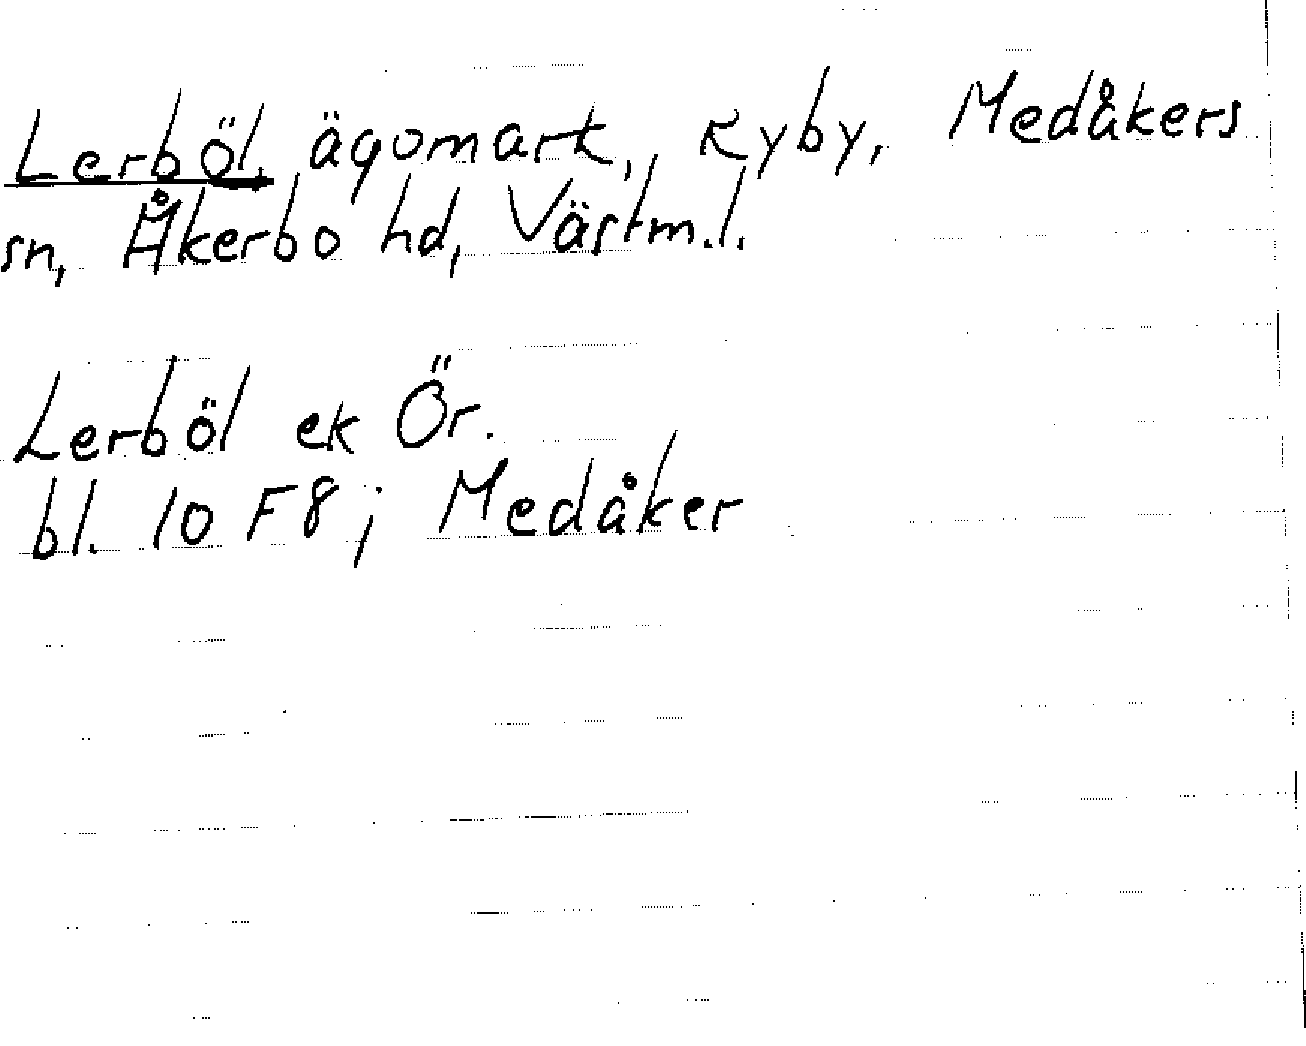 Lerböl, ägomark, Kyby, Medåkers
sn, Åkerbo hd, Västm.l.
Lerböl ek Ör.
bl. 10 F8; Medåker